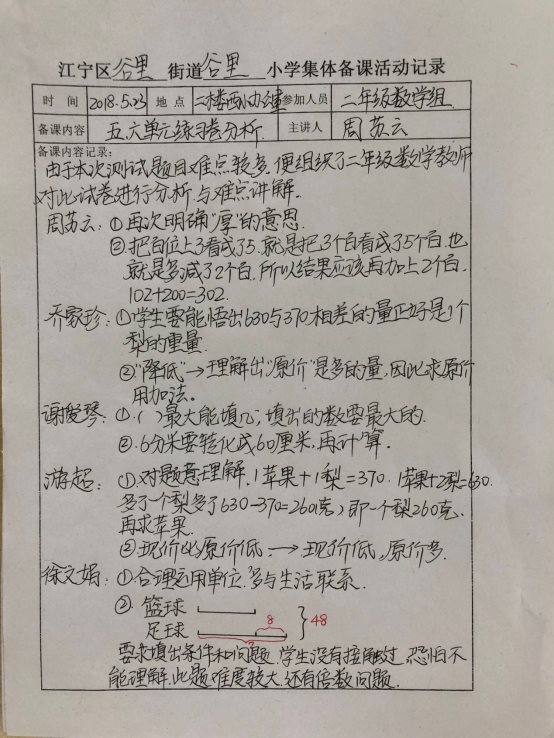 江宁区谷里 街道谷里 小学集体备课活动记录
时 间 2018.5.23 地 点 二楼西办公室 参加人员 二年级数学组
备课内容 五.六单元练习卷分析. 主讲人 周苏云
备课内容记录:
由于本次测试题目难点较多,便组织了二年级数学教师
对此试卷进行分析与难点讲解.
周苏云:①再次明确"厚"的意思.
②.把百位上3看成了5.就是把3个百看成了5个百.也
就是多减了2个百.所以结果应该再加上2个百.
102+200=302.
乔家珍:①学生要能悟出630与370相差的量正好是1个
梨的重量.
②"降低"→理解出"原价"是多的量,因此求原价
用加法。
谢俊琴:①.( )最大能填几,填出的数要最大的.
②.6分米要转化成60厘米,再计算.
游超:①.对题意理解.1苹果+1梨=370. 1苹果+2梨=630.
多了一个梨多了630-370=260(克),即一个梨260克.
再求苹果.
②现价比原价低.→现价低,原价多.
徐文娟:①合理运用单位.多与生活联系.
②. 篮球
8
48
足球
?
要求填出条件和问题.学生没有接触过,恐怕不
能理解.此题难度较大.还有倍数问题.